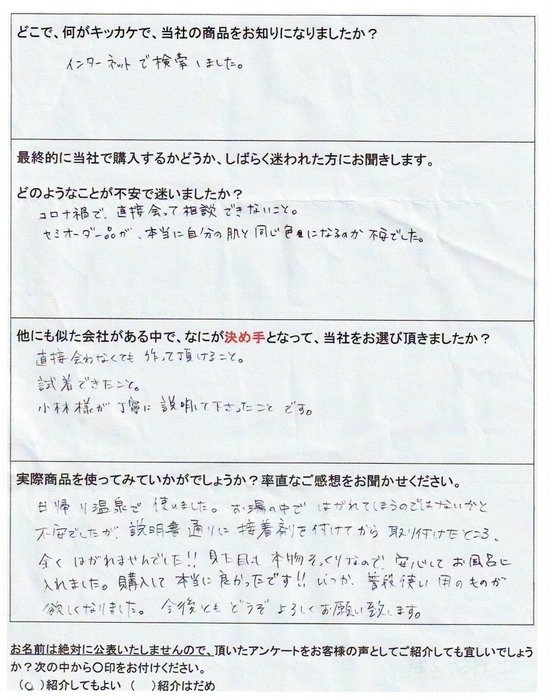 どこで、何がキッカケで、当社の商品をお知りになりましたか？
インターネットで検索しました。
最終的に当社で購入するかどうか、しばらく迷われた方にお聞きします。
どのようなことが不安で迷いましたか？
コロナ禍で、直接会って相談できないこと。
セミオーダー品が、本当に自分の肌と同じ色になるのか不安でした。
他にも似た会社がある中で、なにが決め手となって、当社をお選び頂きましたか？
直接会わなくても作って頂けること。
試着できたこと。
小林様が丁寧に説明して下さったことです。
実際商品を使ってみていかがでしょうか？率直なご感想をお聞かせください。
日帰り温泉で使いました。お湯の中ではがれてしまうのではないかと
不安でしたが、説明書通りに接着剤を付けてから取り付けたところ、
全くはがれませんでした!!見た目も本物そっくりなので、安心してお風呂に
入れました。購入して本当に良かったです!!いつか、普段使い用のものが
欲しくなりました。今後ともどうぞよろしくお願い致します。
お名前は絶対に公表いたしませんので、頂いたアンケートをお客様の声としてご紹介しても宜しいでしょう
か？次の中から〇印をお付けください。
(○)紹介してもよい (　)紹介はだめ